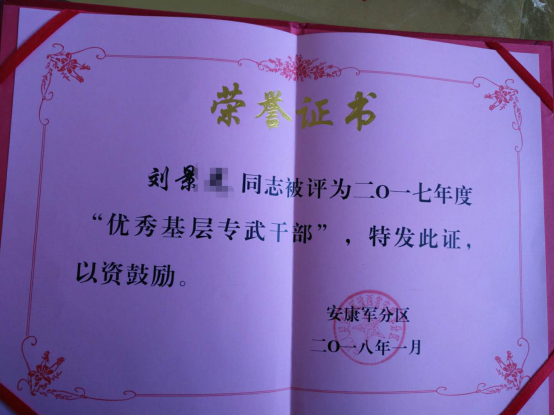 荣誉证书
刘景 同志被评为二〇一七年度
“优秀基层专武干部”，特发此证，
以资鼓励。
安康军分区
二〇一八年一月